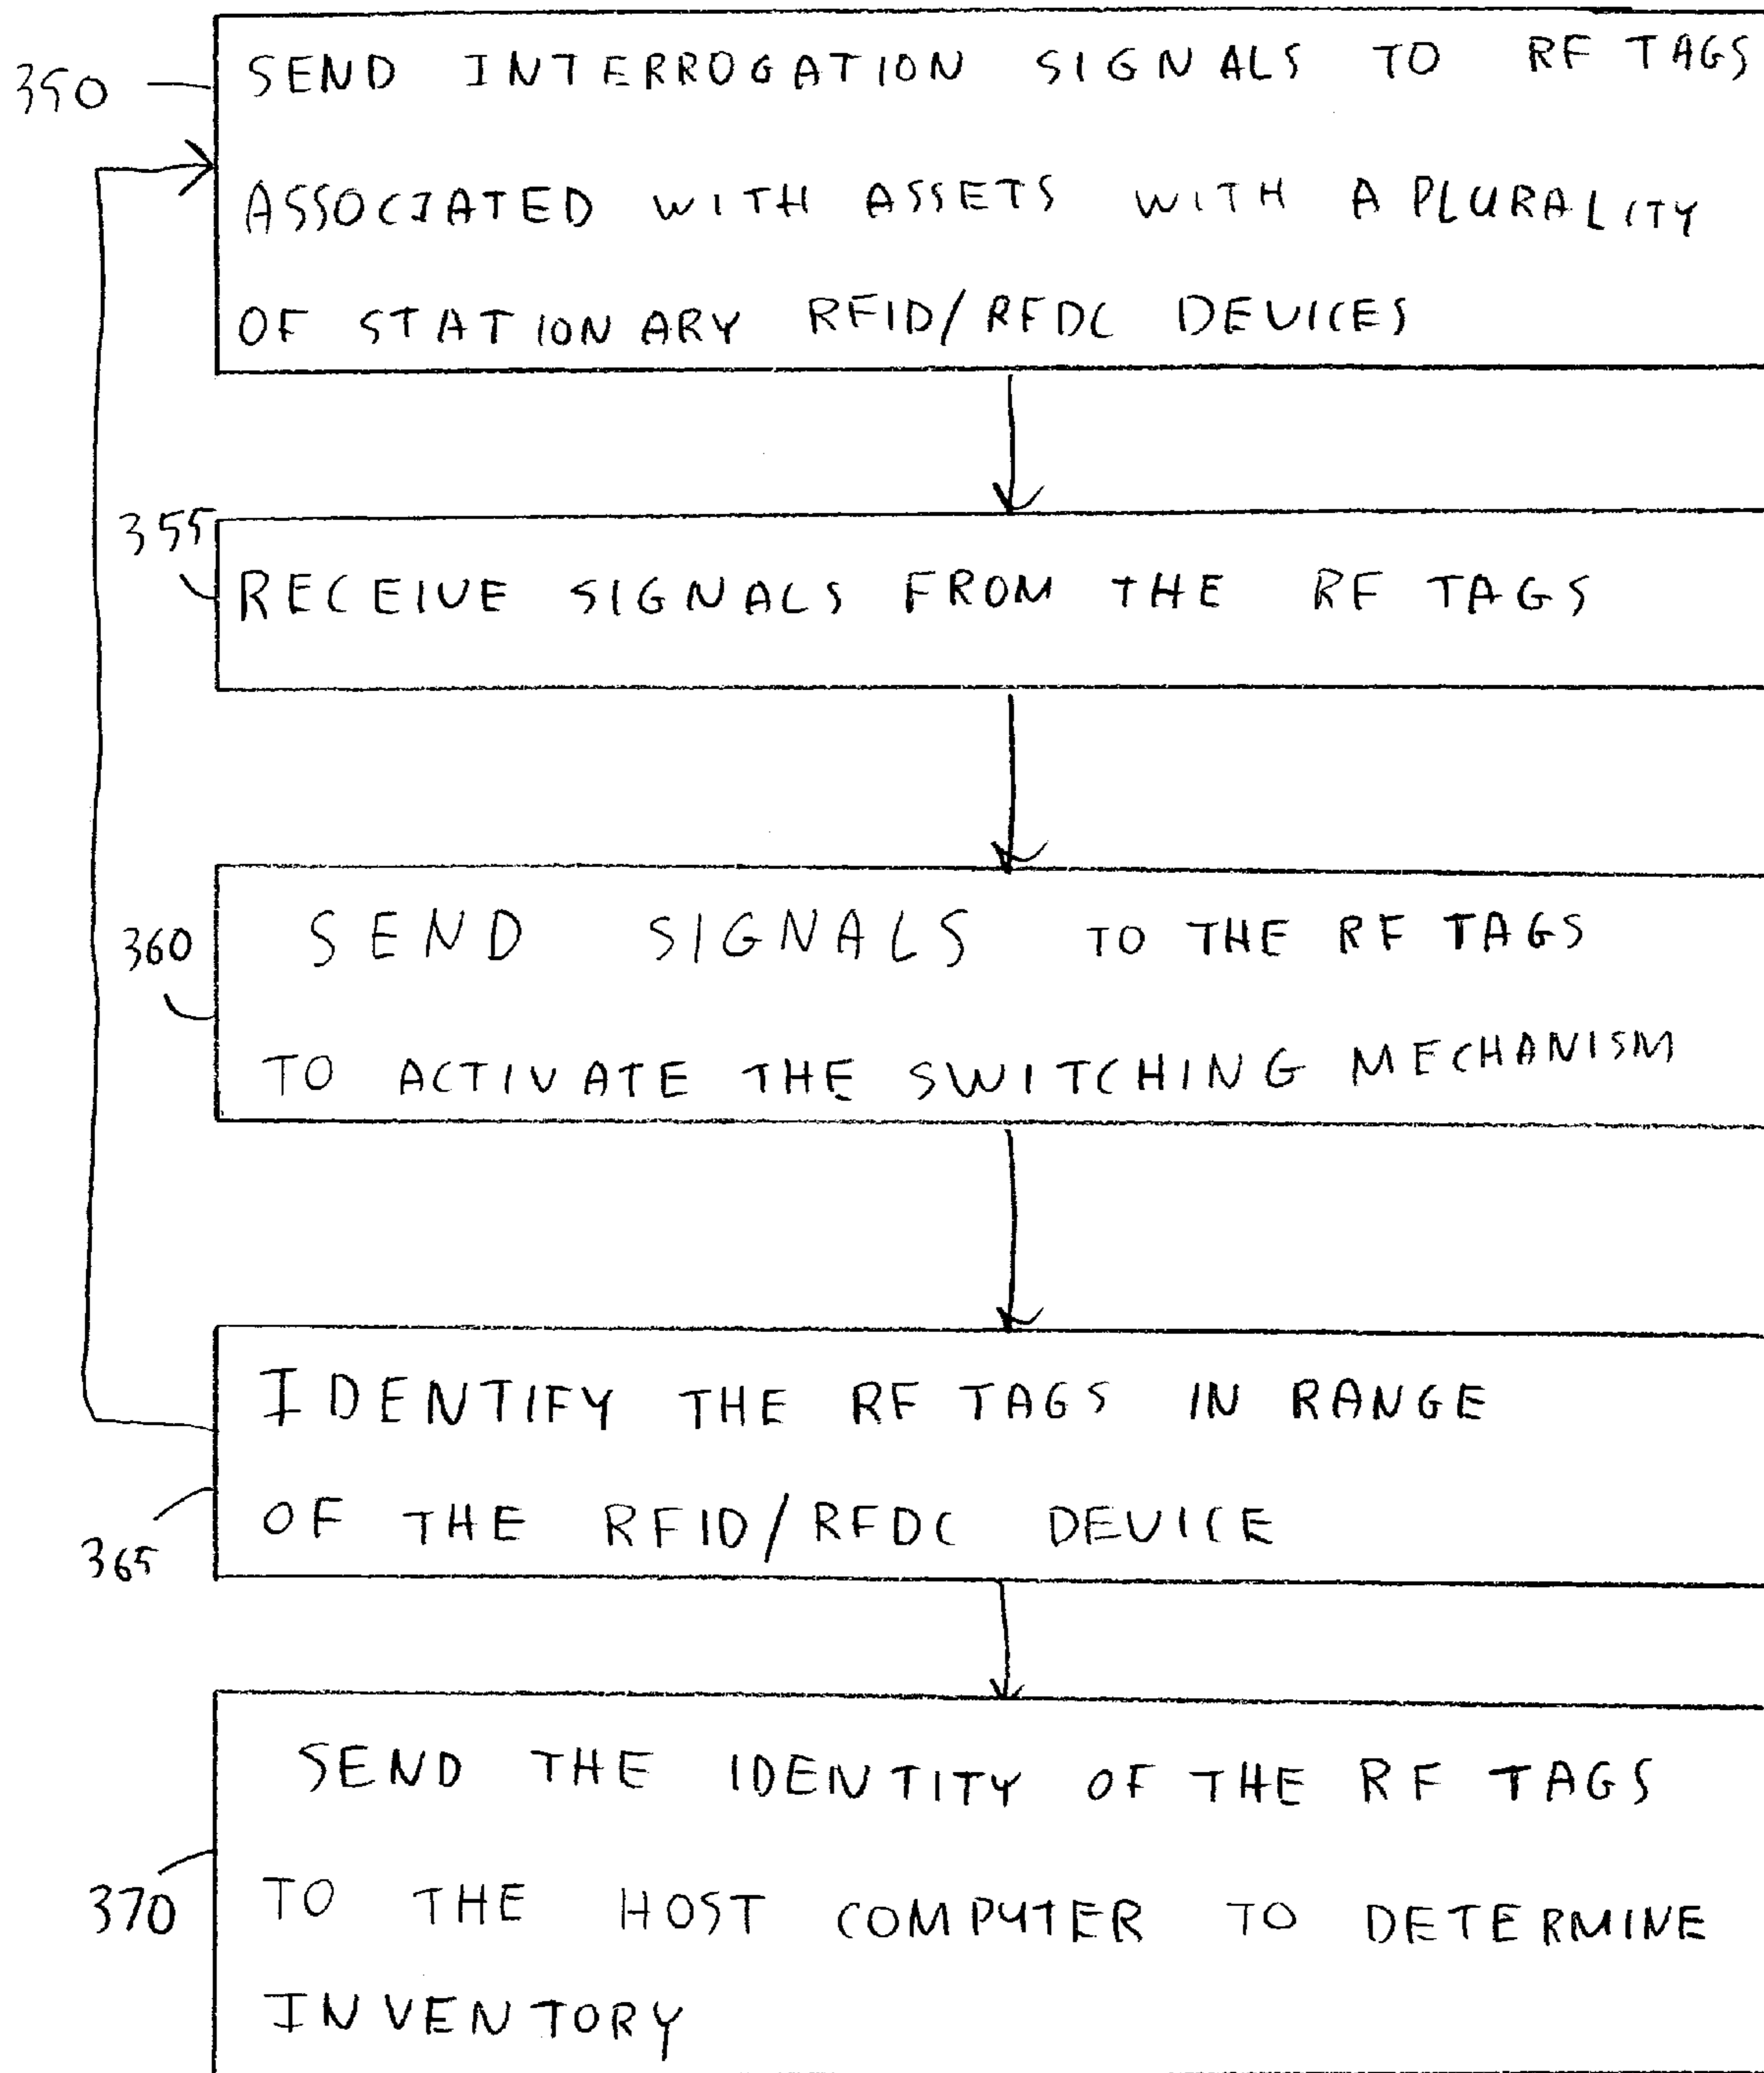 350
SEND INTERROGATION SIGNALS TO RF TAGS
ASSOCIATED WITH ASSETS WITH A PLURALITY
OF STATIONARY RFID/RFDC DEVICES
355
RECEIVE SIGNALS FROM THE RF TAGS
360
SEND SIGNALS TO THE RF TAGS
TO ACTIVATE THE SWITCHING MECHANISM
IDENTIFY THE RF TAGS IN RANGE
OF THE RFID/RFDC DEVICE
365
SEND THE IDENTITY OF THE RF TAGS
370
TO THE HOST COMPUTER TO DETERMINE
INVENTORY